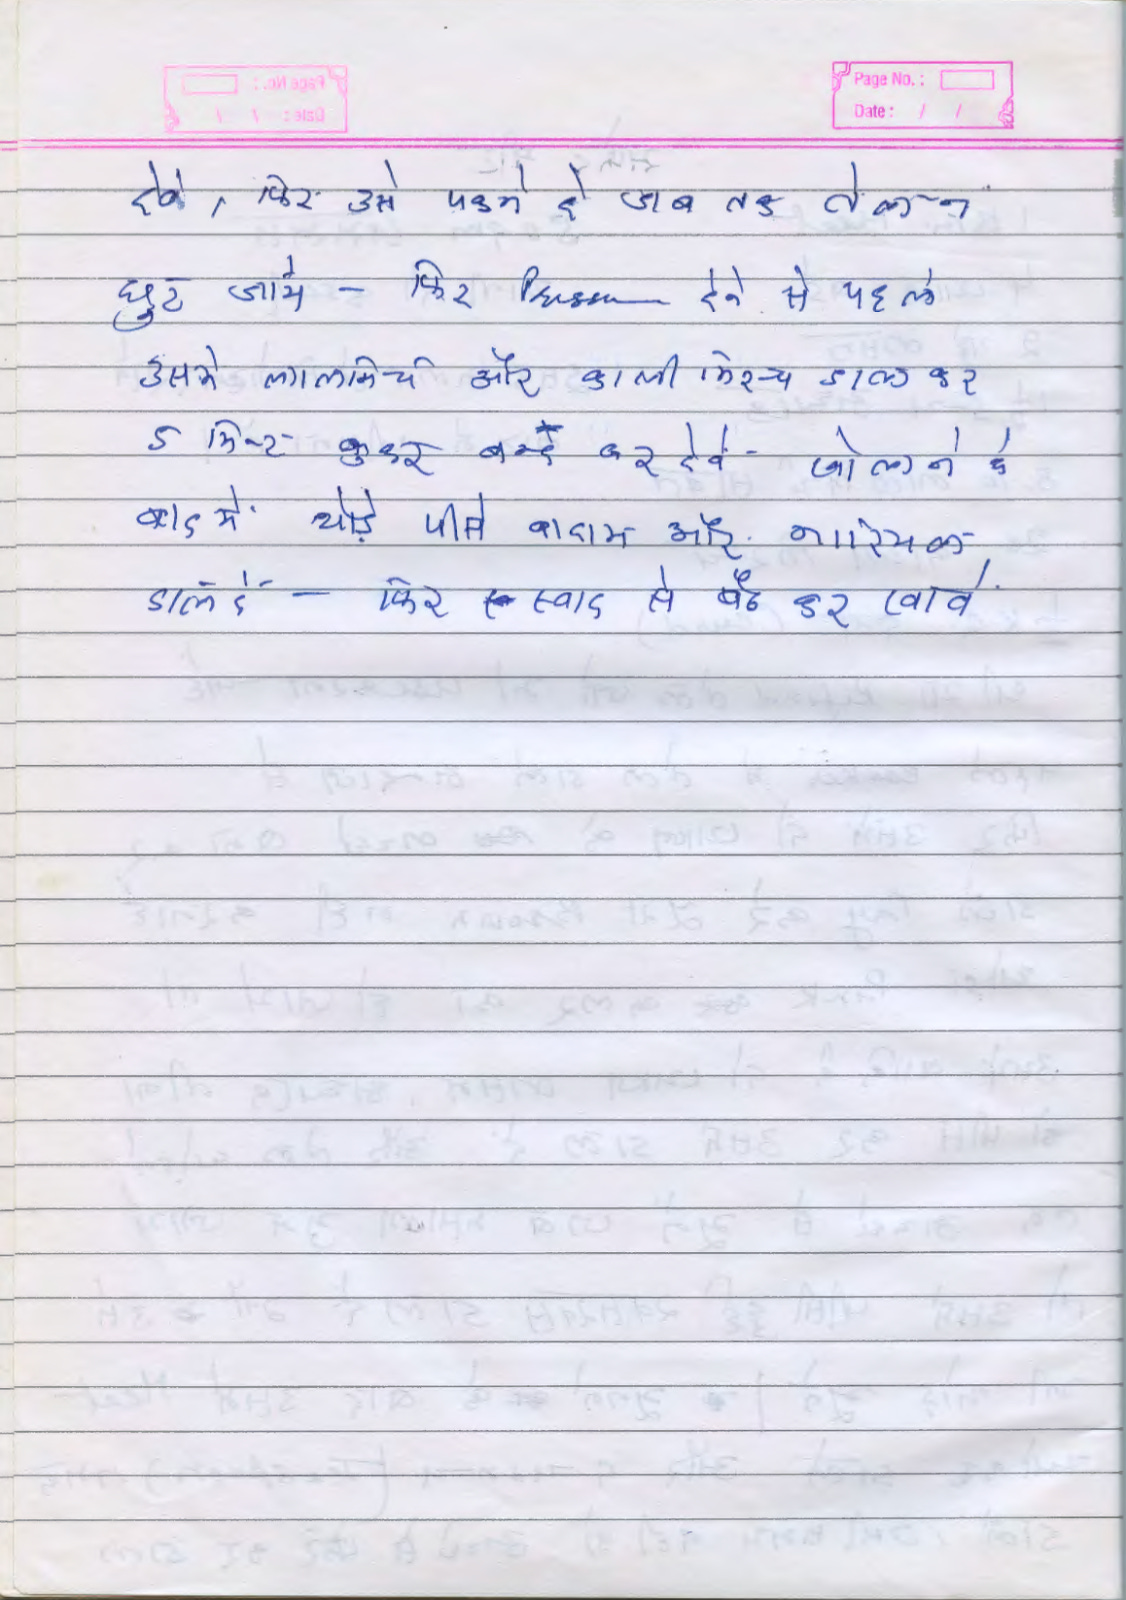 Page No. :
Date : / /
देवे, फिर उसे पकने दे जब तक तेल न
छुट जाये - फिर देने से पहले
उसमे लालमिर्च और काली मिरच डाल कर
5 मिन्ट कुकर बन्द कर देवे - खोलने के
बाद में थोड़े पीसे बादाम और नारियल
डाल दे - फिर स्वाद से बैठ कर खावे